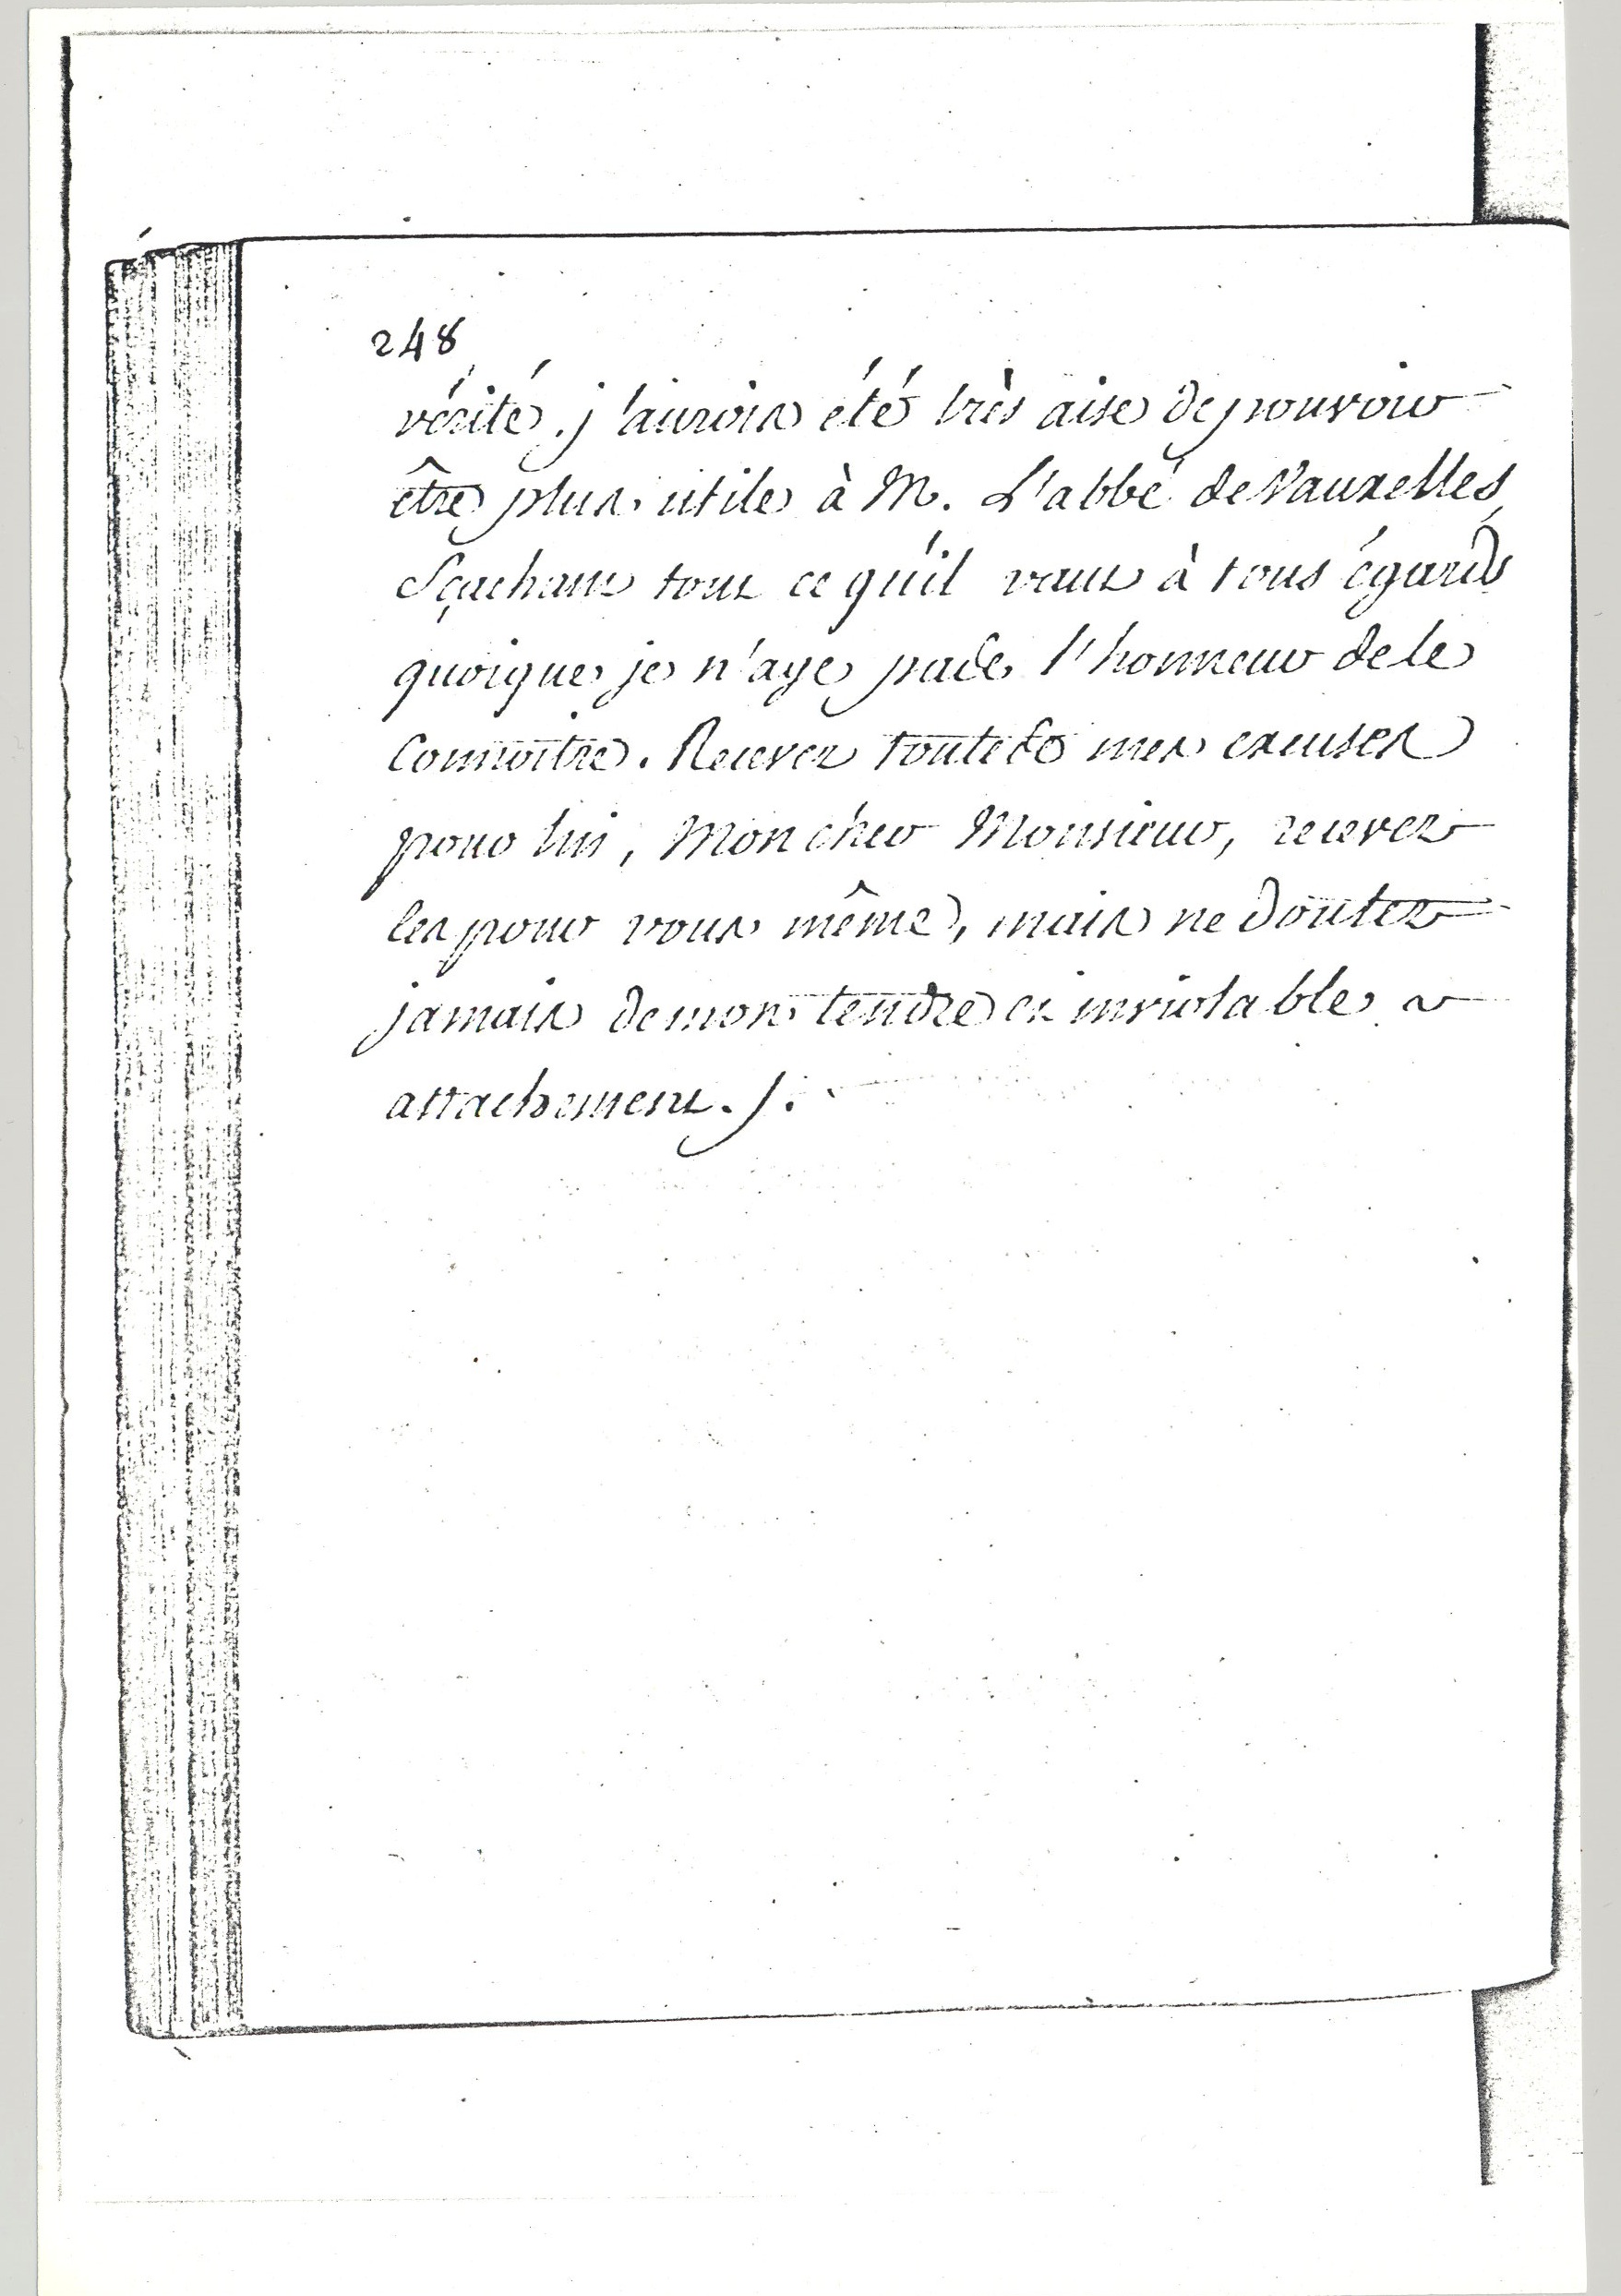 248
vérité. j'aurois été très aise de pouvoir
être plus utile à M. L'abbé de Vauxelles,
Sçachant tout ce qu'il vaut à tous égards
quoique je n'aye pas l'honneur de le
Connoitre. Recevez toutes mes excuses
pour lui, Mon cher Monsieur, recevez
les pour vous même, mais ne doutez
jamais de mon tendre et inviolable
attachement./.